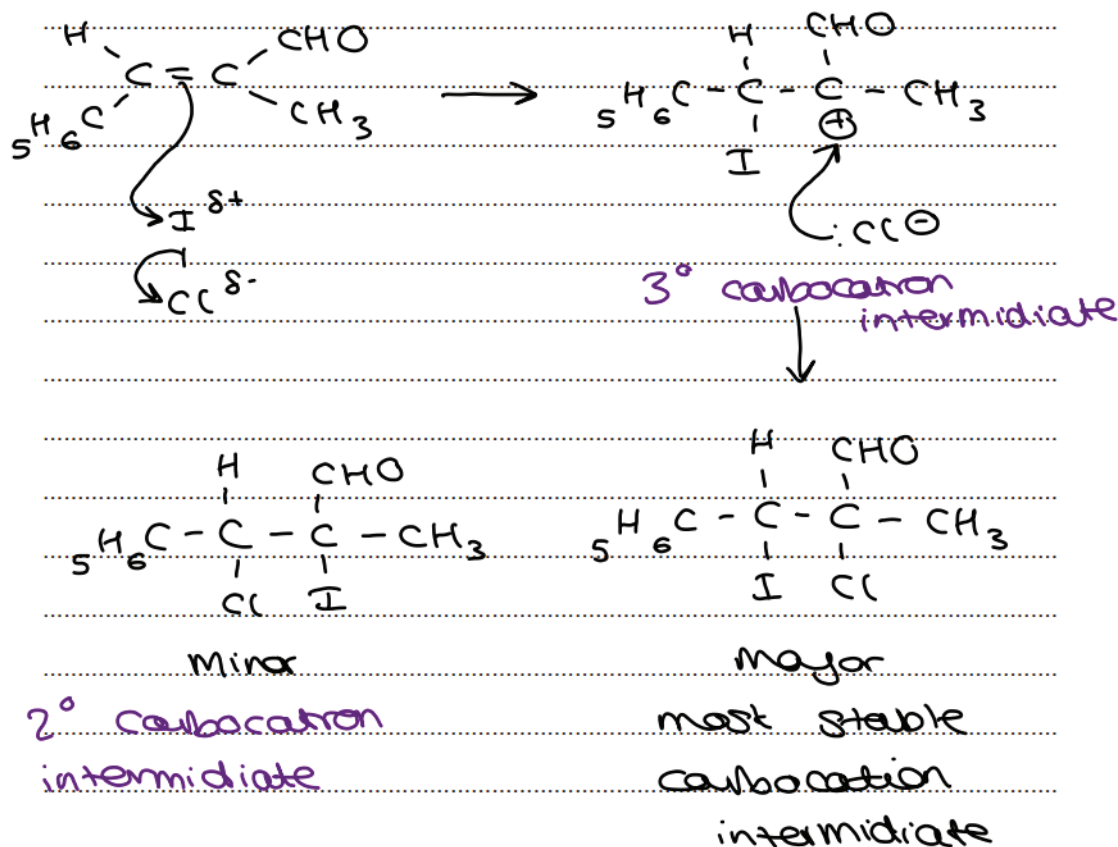 H CHO
C = C
₅H₆C CH₃
I δ+
Cl δ-
H CHO
₅H₆C - C - C - CH₃
I ⊕
:Cl⊖
3° carbocation
intermidiate
H CHO
₅H₆C - C - C - CH₃
Cl I
minor
2° carbocation
intermidiate
H CHO
₅H₆C - C - C - CH₃
I Cl
major
most stable
carbocation
intermidiate